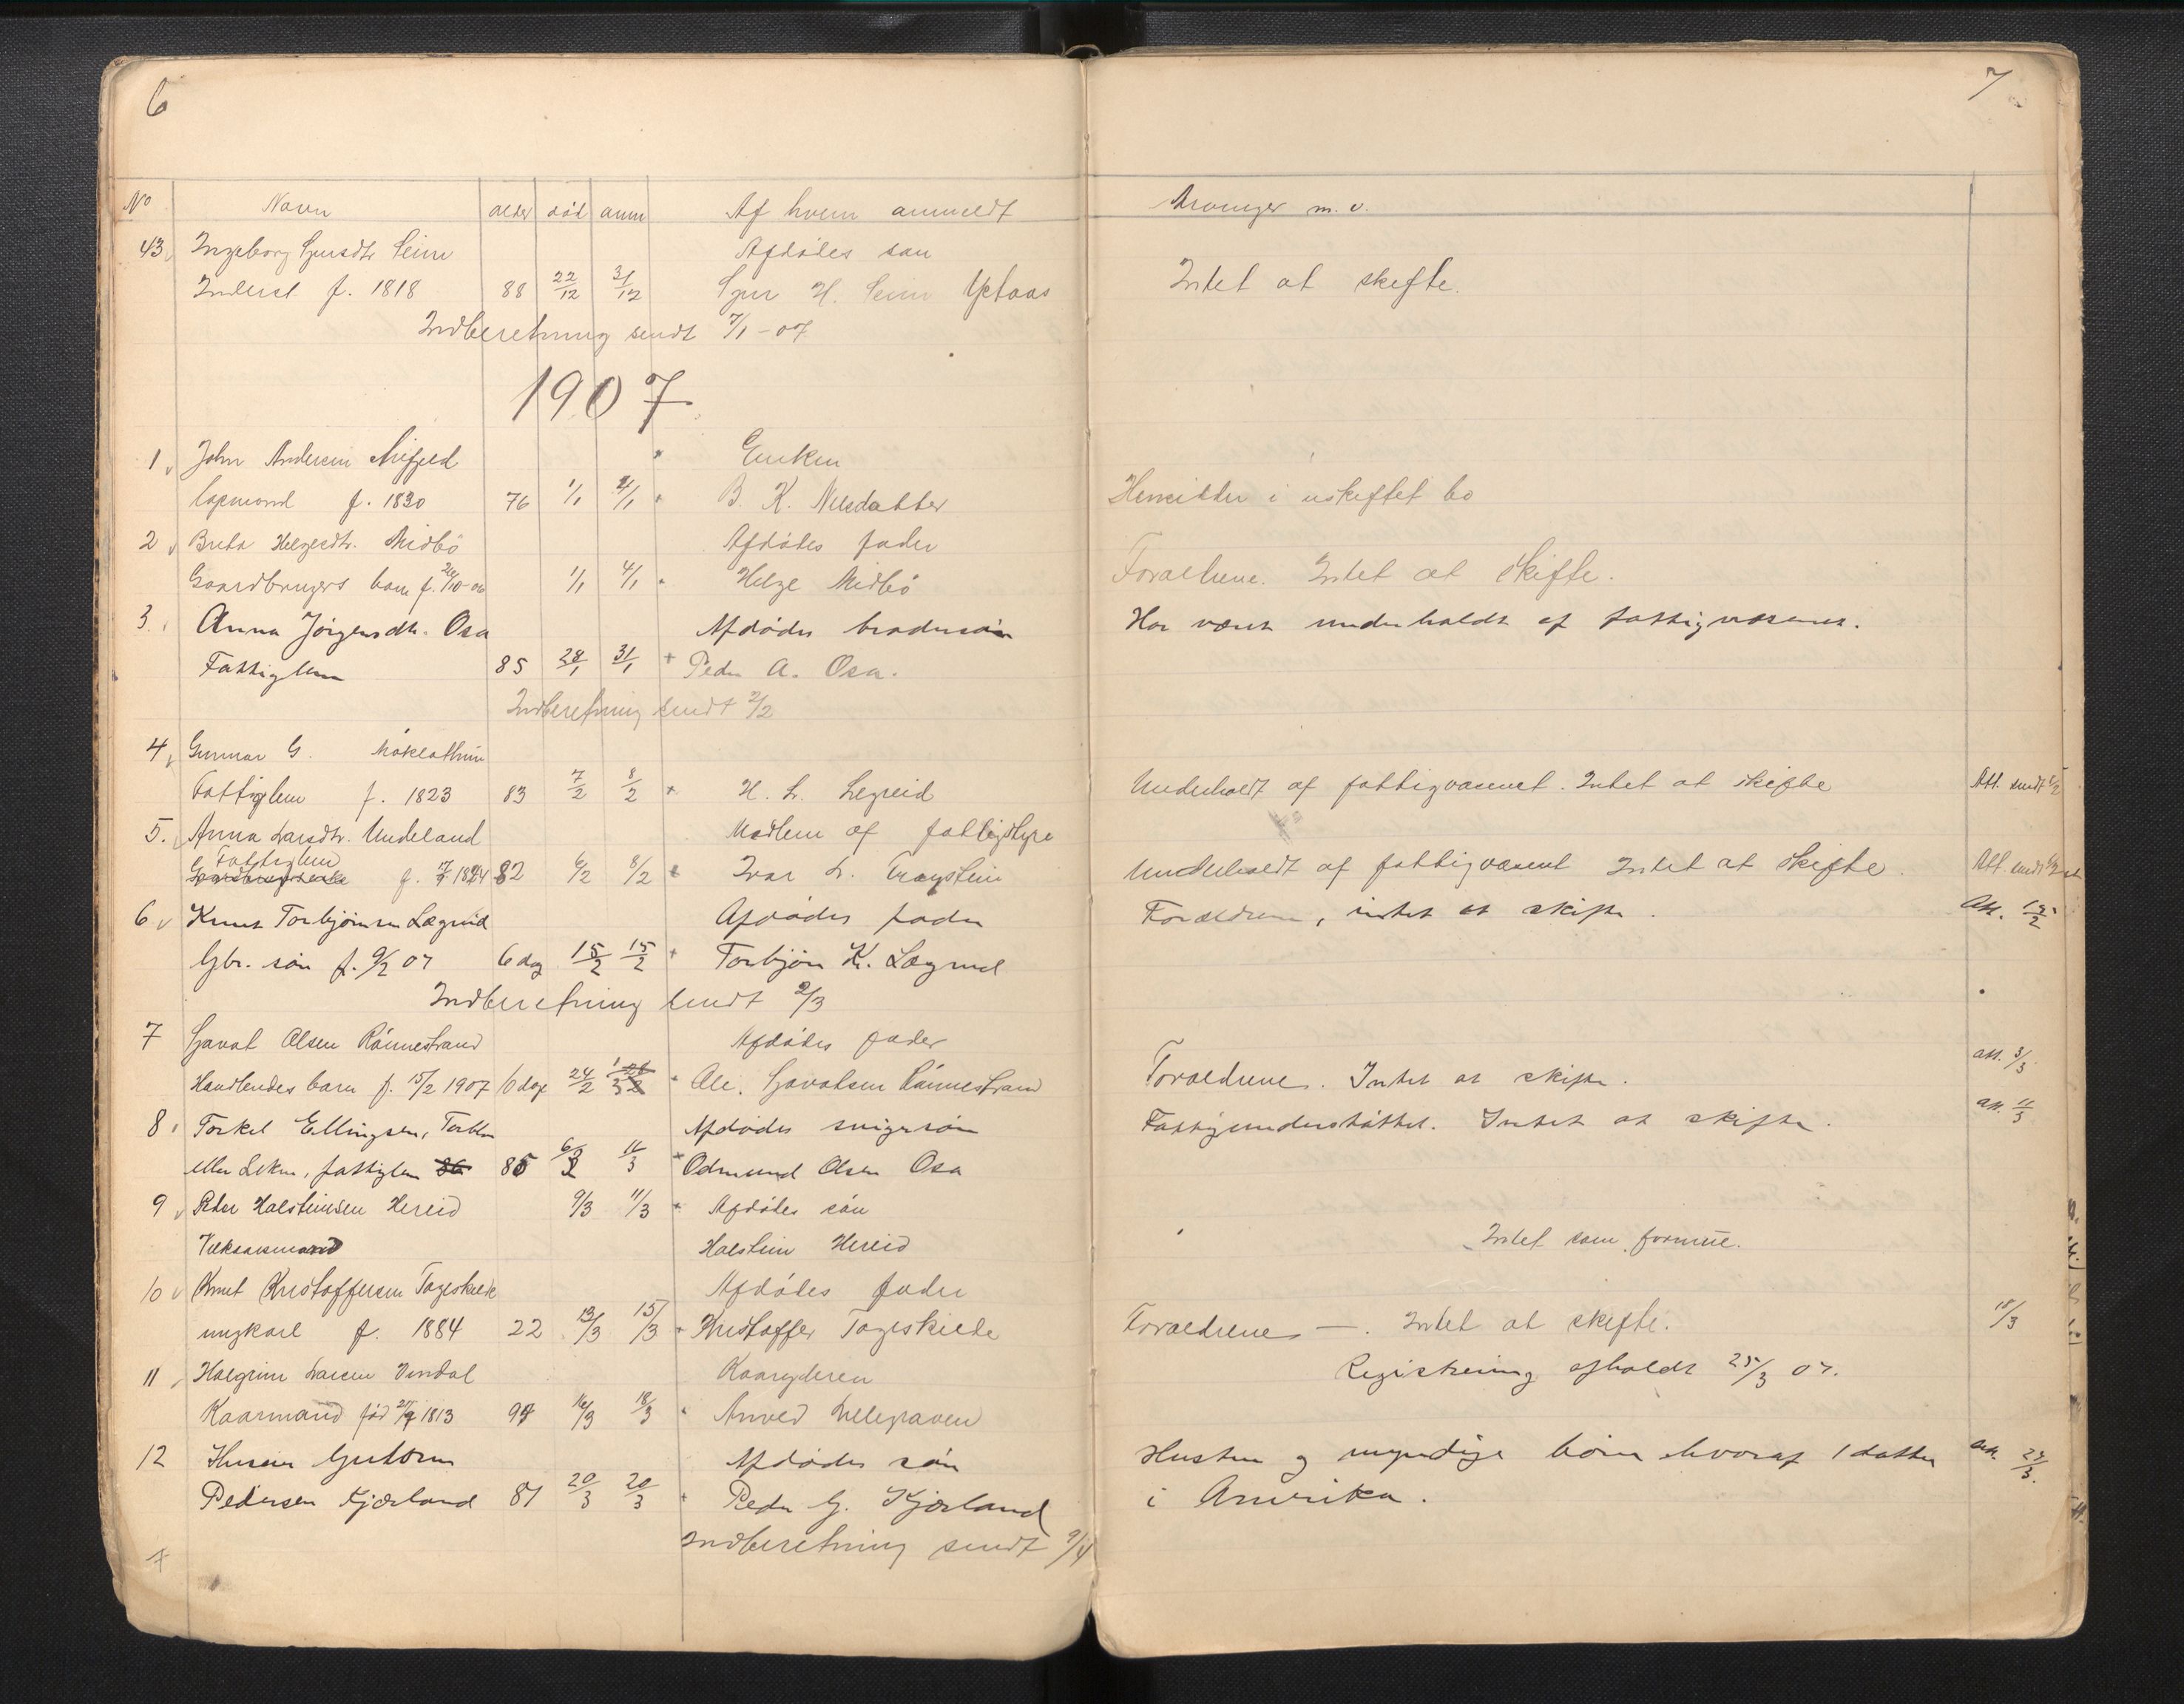 6
7
No Navn alder död anm Af hvem anmeldt Arvinger m. v.
43 Ingeborg Sjursdtr Seim Afdödes sön
Inderst f. 1818 88 22/12 31/12 Sjur H. Seim Intet at skifte.
Indberetning sendt 7/1 - 07
1907
1 John Andersen Enken
f. 1830 76 1/1 4/1 B. K. Nilsdatter Hensitter i uskiftet bo
2 Brita Helgesdtr. Midbö Afdödes fader
Gaardbrugers barn f. 26/10-06 1/1 4/1 Helge Midbö Forældrene. Intet at skifte.
3. Anna Jörgensdtr. Osa Afdödes brodersön Har været underholdt af fattigvæsenet.
Fattiglem 85 28/1 31/1 Peder A. Osa.
Indberetning sendt 2/2
4 Gunnar G. Maklathun
Fattiglem f. 1823 83 7/2 8/2 H. L. Legreid Underholdt af fattigvæsenet. Intet at skifte Att. sendt
5. Anna Larsdtr. Undeland Medlem af fattigstyre
Fattiglem
f. 1824 82 6/2 8/2 Ivar L. Underholdt af fattigvæsenet Intet at skifte. Att. sendt
6 Knut Torbjörnsen Lægreid Afdödes fader Forældrene, intet at skifte. Att. 15/2
Gbr. sön f. 9/2 07 6 dag 15/2 15/2 Torbjörn K. Lægreid
Indberetning sendt 2/3
7 Gavat Olsen Rönnestrand Afdödes fader
Handlendes barn f. 15/2 1907 10 dage 24/2 1/3 Ole. Gavatsen Rönnestrand Forældrene. Intet at skifte. att. 3/3
8 Torkel Ellingsen, Afdödes svigersön Fattigunderstöttet. Intet at skifte. att. 11/3
eller Leken, fattiglem 86 85 6/3 11/3 Odmund Olsen Osa
9 Peder Halsteinsen Hereid 9/3 11/3 Afdödes sön
Halstein Hereid Intet som formue.
10 Knut Kristoffersen Tageskilde Afdödes fader
ungkarl f. 1884 22 13/3 15/3 Kristoffer Tageskilde Forældrene —. Intet at skifte. 18/3
11 Halgrim Larsen Vindal Registrering afholdt 25/3 07.
Kaarmand föd 1813 16/3 18/3 Anved Lillegraven
12 Husein Guttorm Afdödes sön Hustru og myndige börn hvoraf 1 datter att. 24/3.
Pedersen Kjærland 81 20/3 20/3 Peder G. Kjærland i Amerika.
Indberetning sendt 9/4